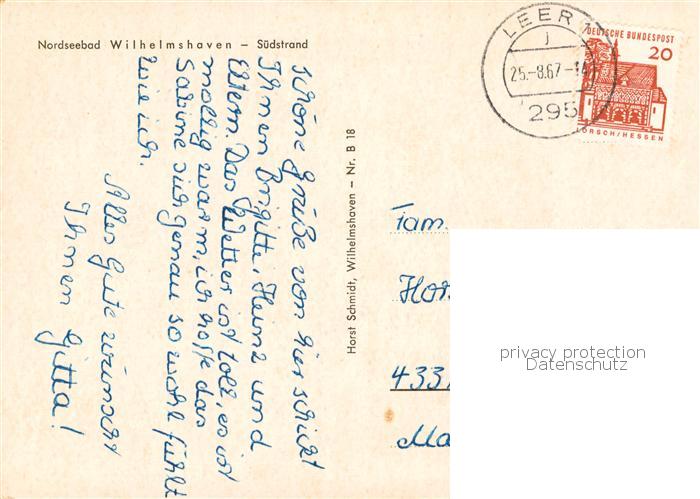 Nordseebad Wilhelmshaven – Südstrand
LEER
j
25.-8.67-
295
DEUTSCHE BUNDESPOST
20
LORSCH/HESSEN
schöne Grüße von hier schickt
Ihnen Brigitte, Heinz und
Eltern. Das Wetter ist toll, es ist
mollig warm, ich hoffe das
Sabine sich genau so wohl fühlt
wie ich.
Alles Gute wünscht
Ihnen Gitta!
Horst Schmidt, Wilhelmshaven – Nr. B 18
Fam.
433
privacy protection
Datenschutz